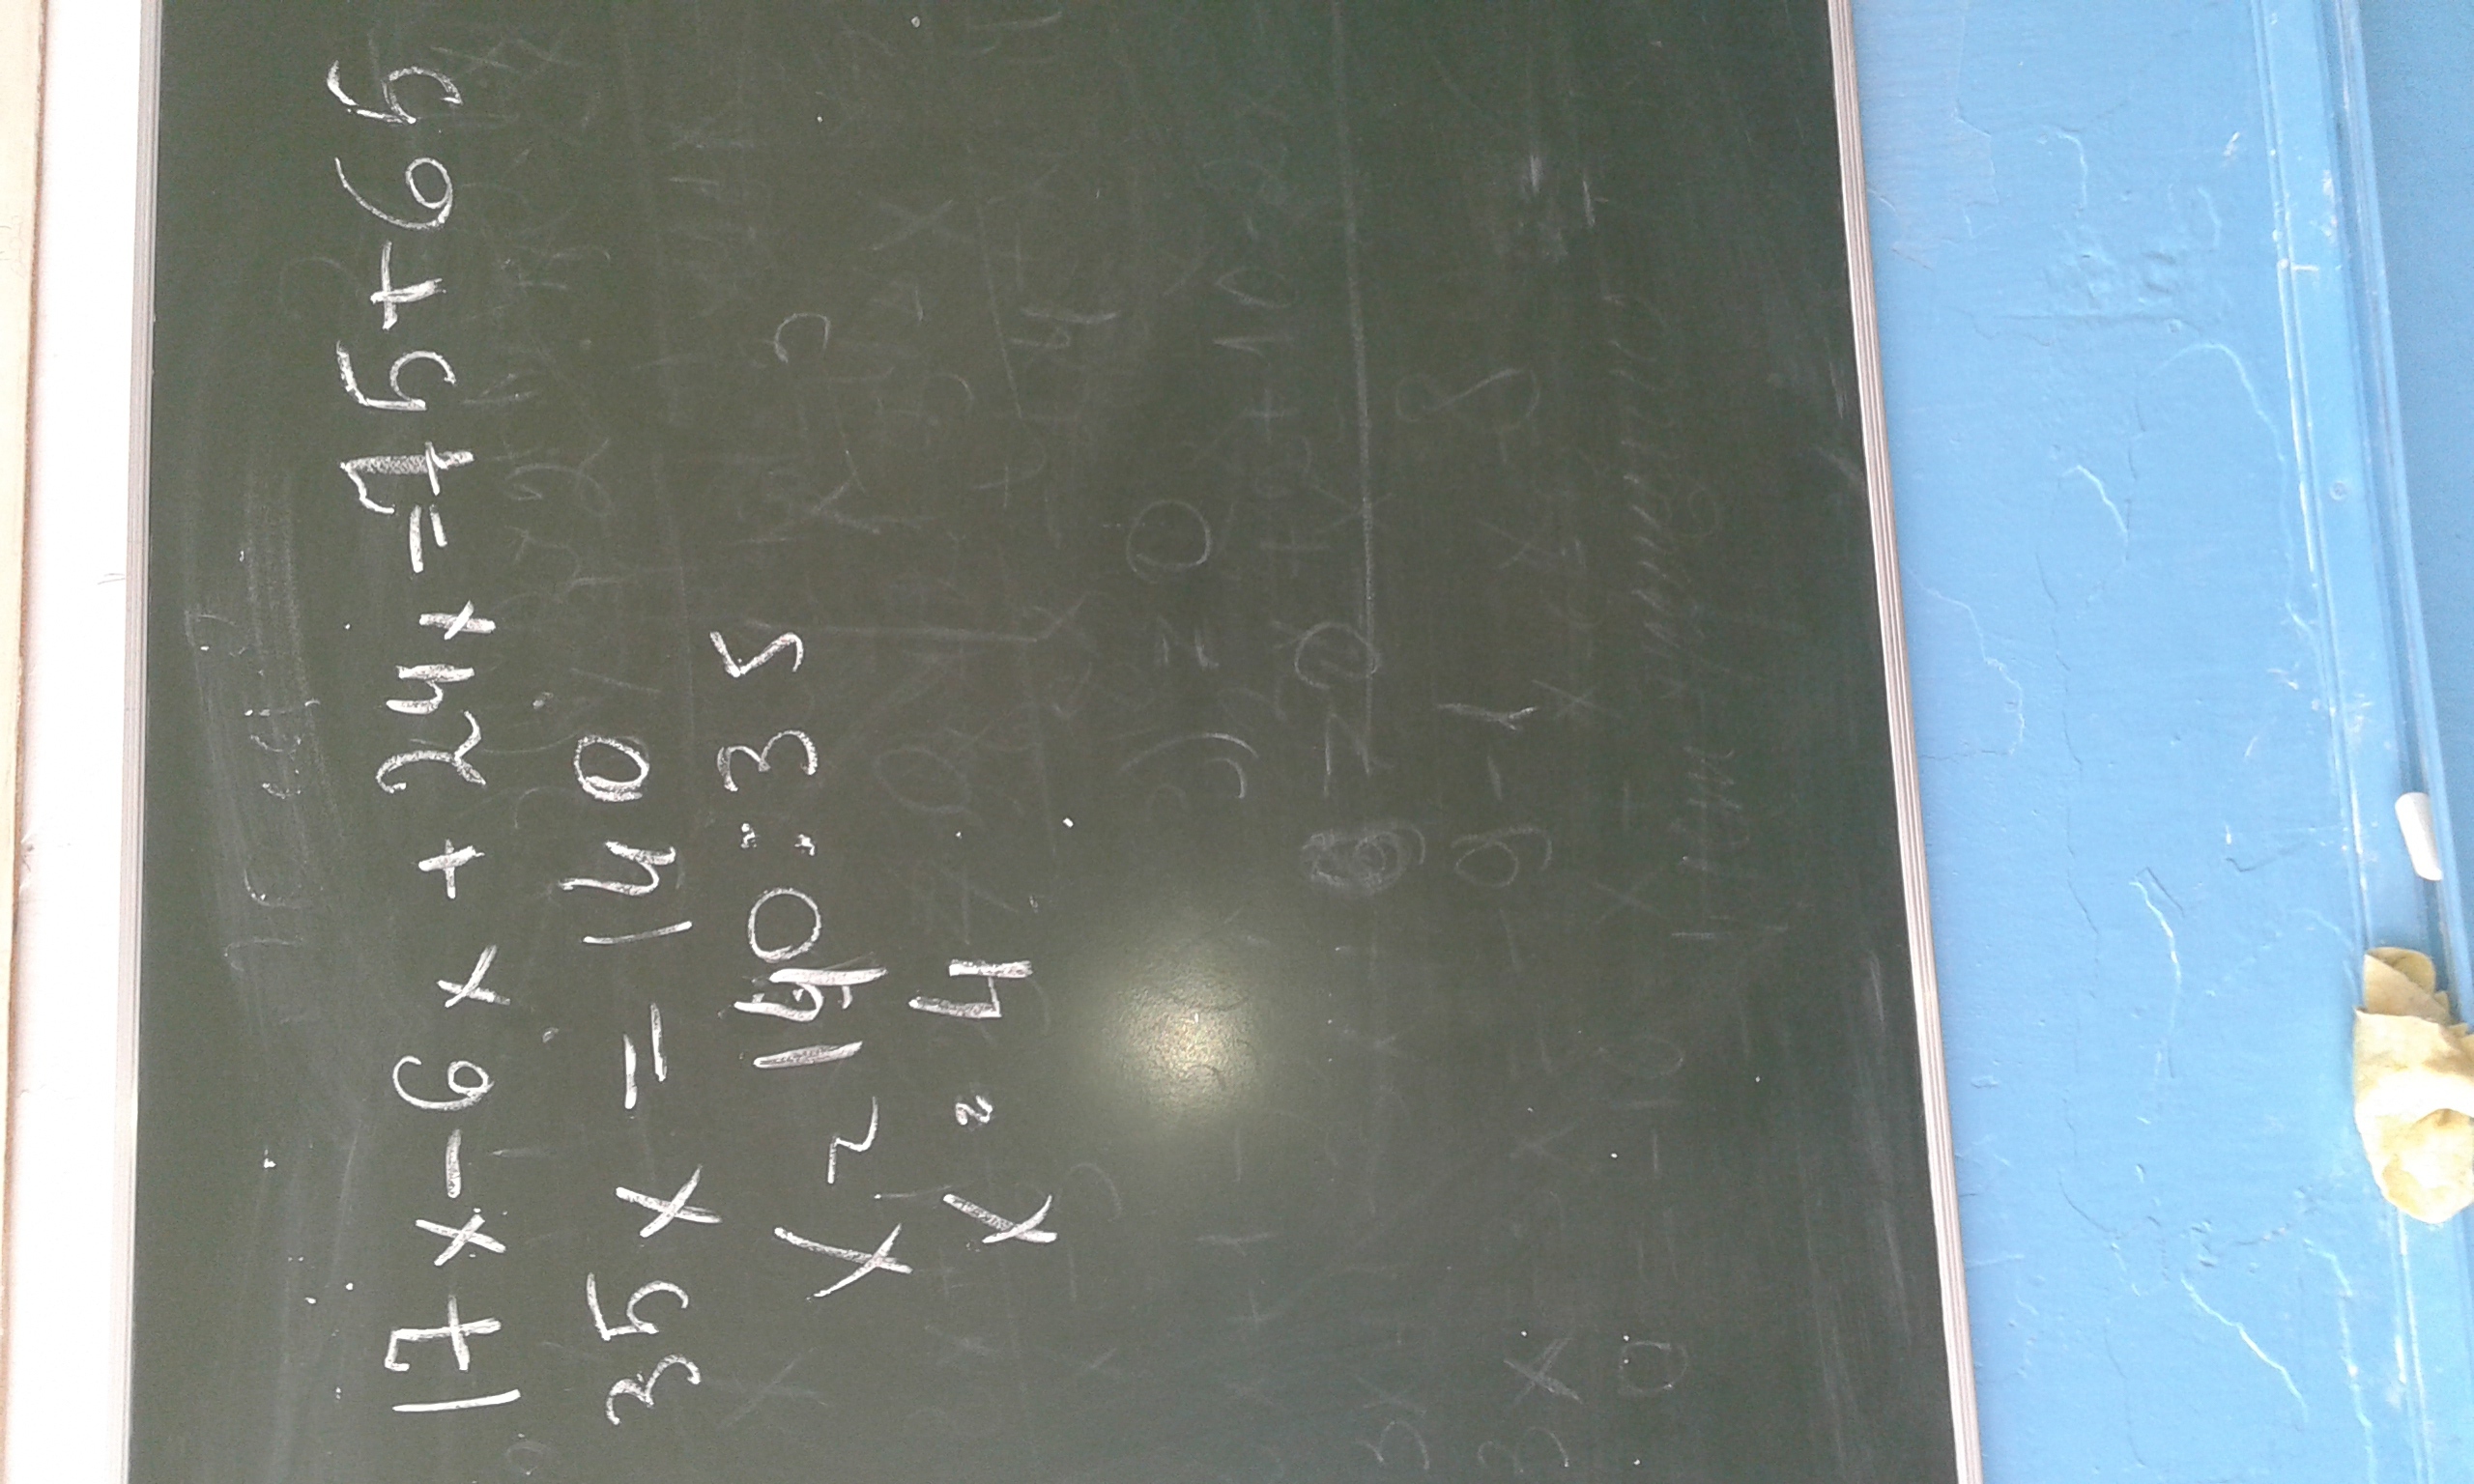 17x-6x+24x=75+65
35x=140
x=140:35
x=4